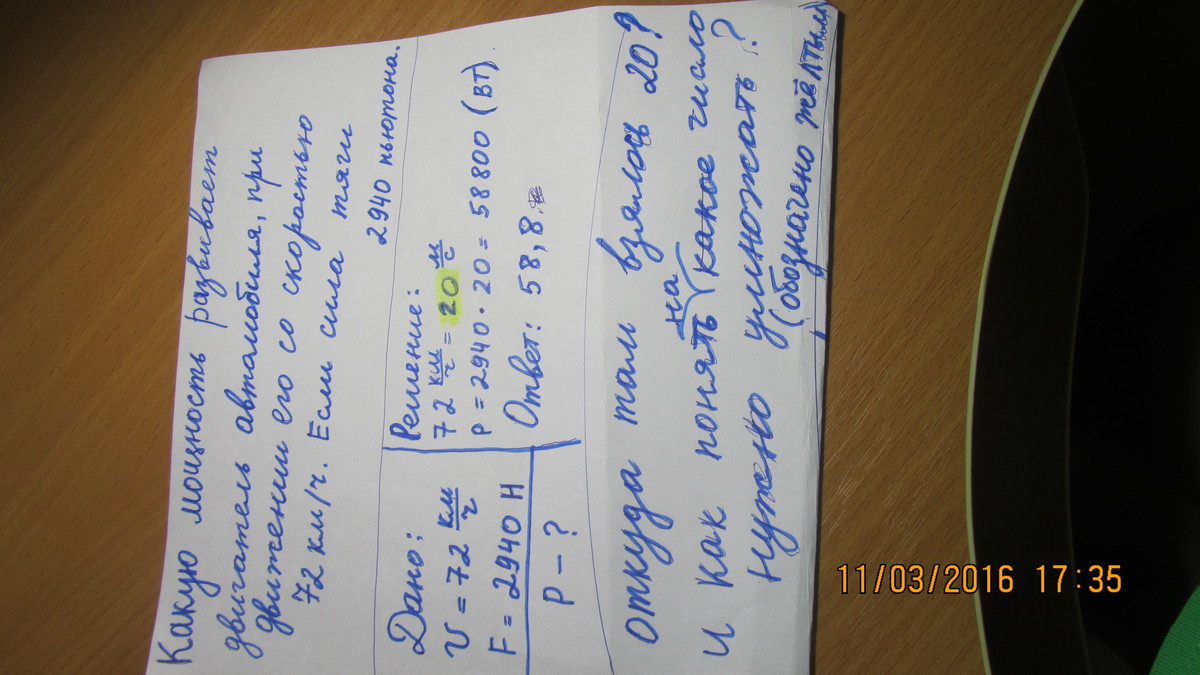 Какую мощность развивает
двигатель автомобиля, при
движении его со скоростью
72 км/ч. Если сила тяги
2940 ньютона.
Дано:
v = 72 км/ч
F = 2940 Н
P - ?
Решение:
72 км/ч = 20 м/с
P = 2940 · 20 = 58800 (ВТ).
Ответ: 58,8.
Откуда там взялось 20?
и как понять на какое число
нужно умножать?
(обозначено жёлтым)
11/03/2016 17:35